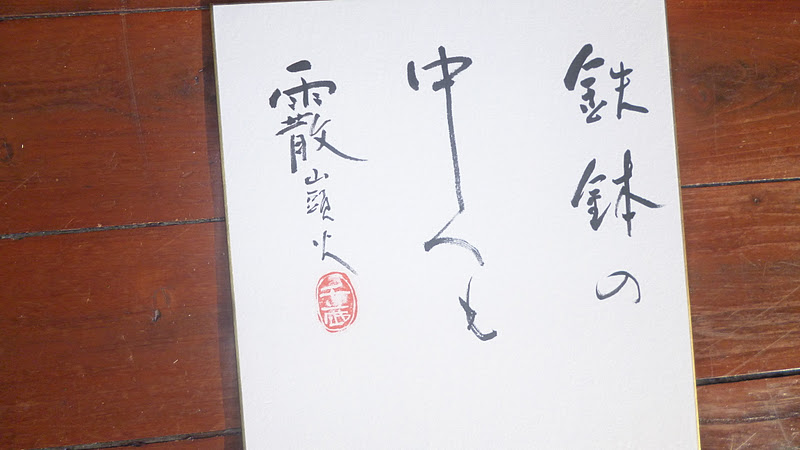 鉄鉢の
中へも
霰 山頭火